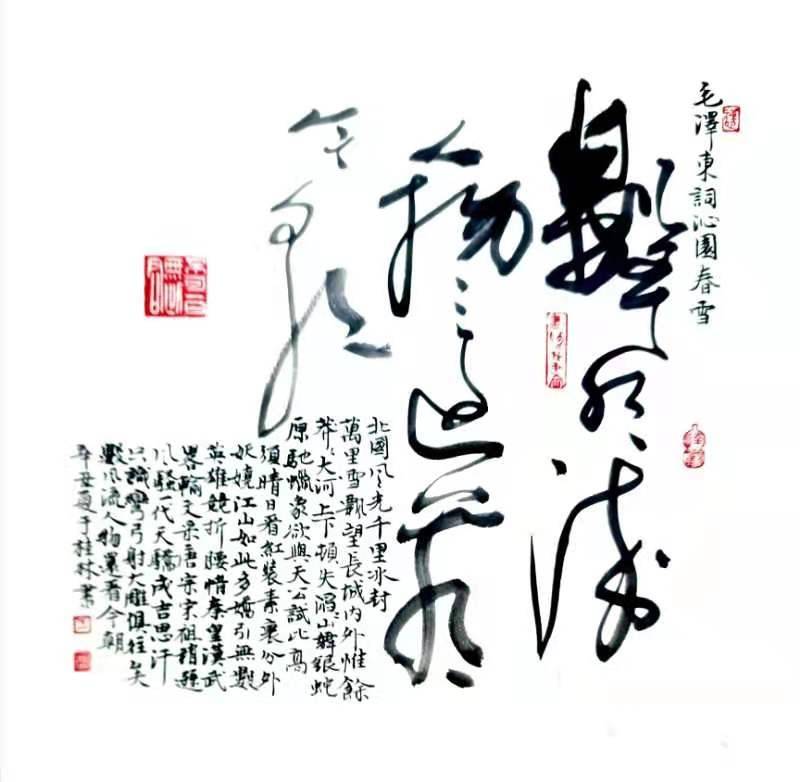 毛澤東詞沁園春雪
數風流
人物還看
今朝
北國風光千里冰封
萬里雪飄望長城內外惟餘
莽々大河上下頓失滔山舞銀蛇
原馳蠟象欲與天公試比高
須晴日看紅裝素裹分外
妖嬈江山如此多嬌引無數
英雄競折腰惜秦皇漢武
畧輸文采唐宗宋祖稍遜
風騷一代天驕成吉思汗
只識彎弓射大雕俱往矣
數風流人物還看今朝
辛丑夏于桂林書